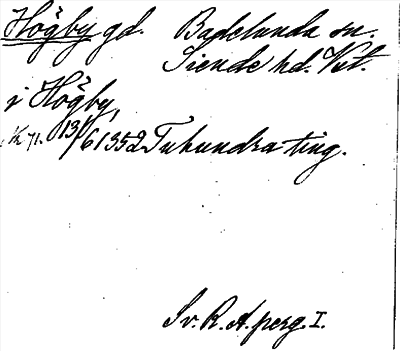 Högby gd. Badelunda sn.
Siende hd. Vstl.
i Högby,
Nr 71. 13/6 1352 Tuhundra-ting.
Sv. R. A. perg. I.